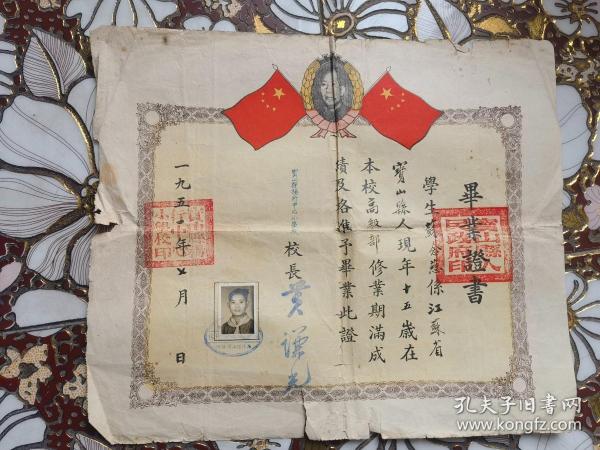 畢業證書
學生 係江蘇省
寶山縣人現年十五歲在
本校高級部修業期滿成
績及格准予畢業此證
校長 黄
一九五 年七月 日
寶山縣人民政府印
孔夫子旧书网
www.kongfz.com